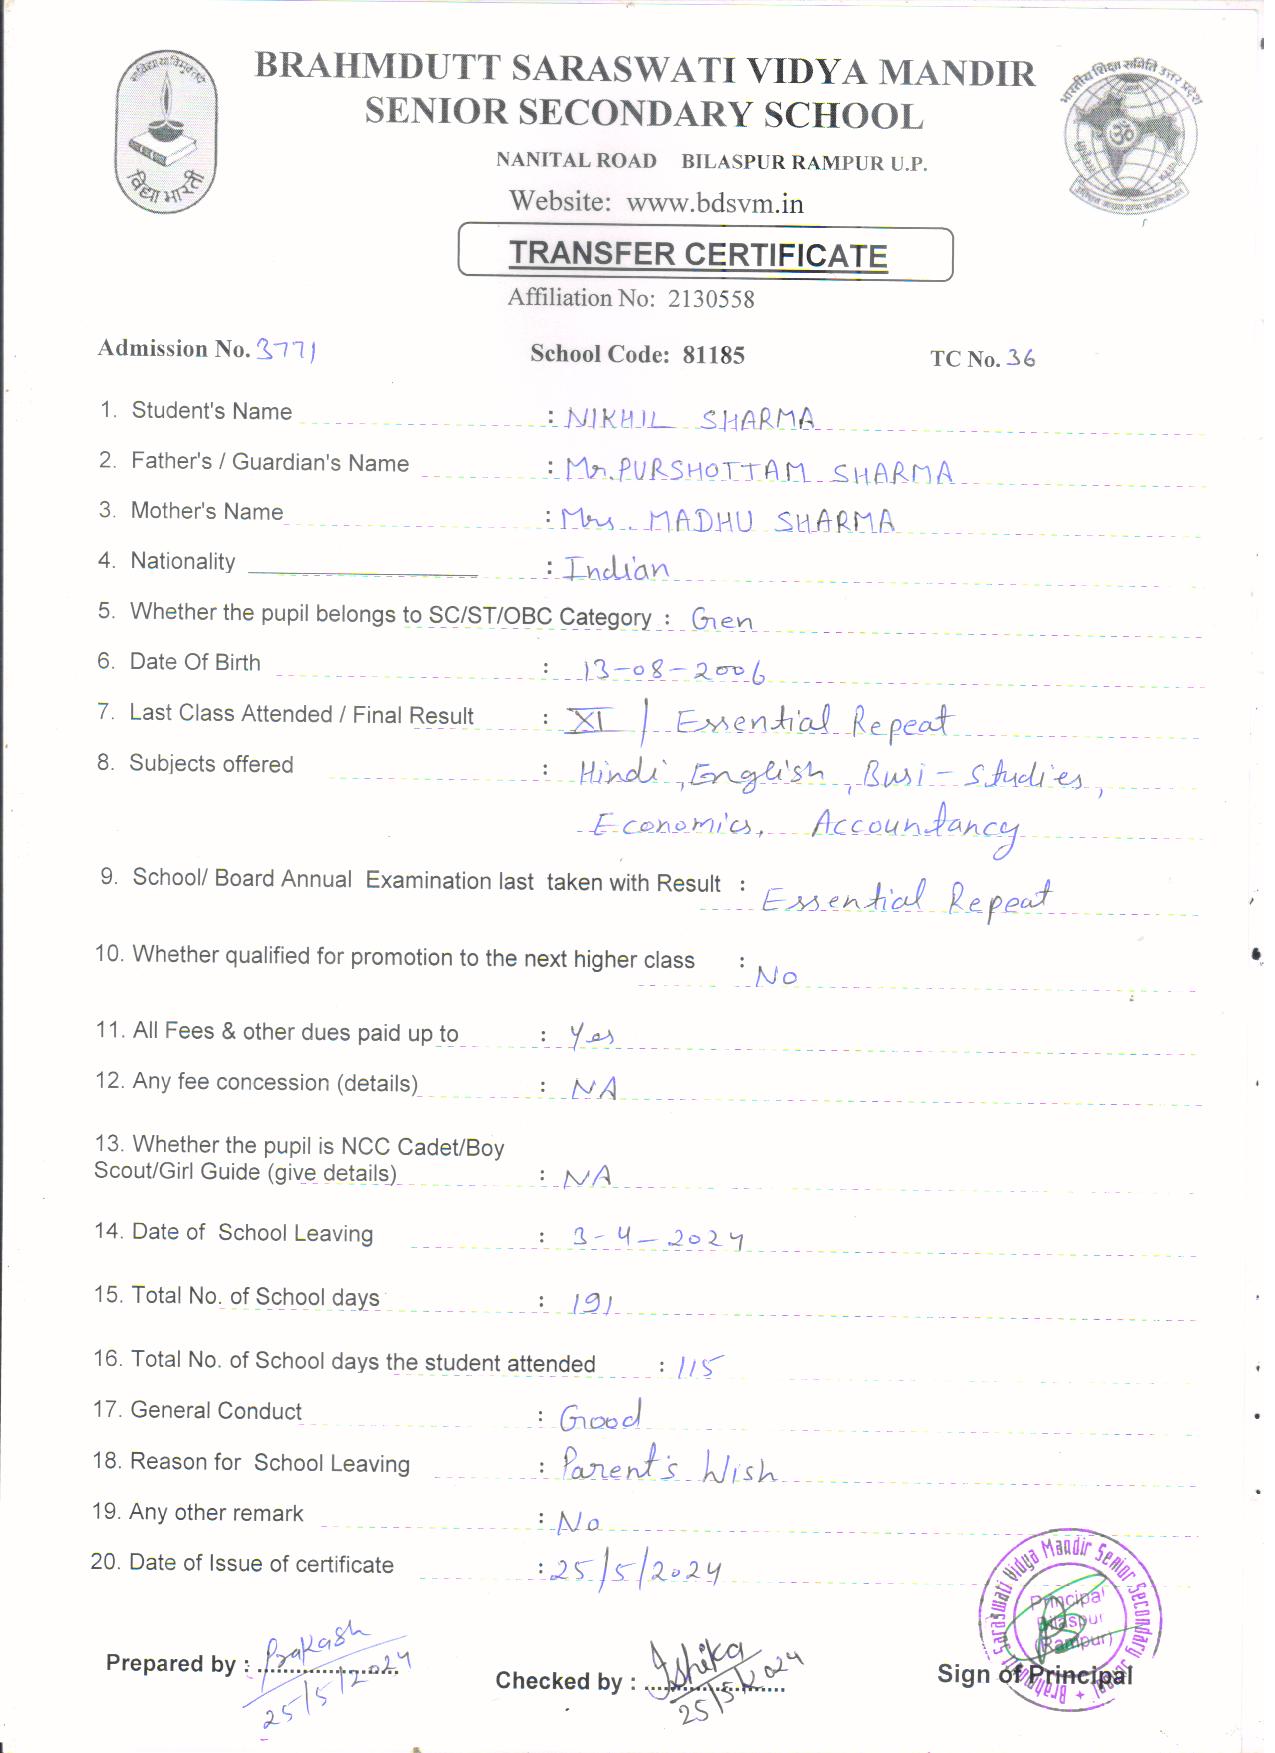 सा विद्या या विमुक्तये
विद्या भारती
BRAHMDUTT SARASWATI VIDYA MANDIR
SENIOR SECONDARY SCHOOL
भारतीय शिक्षा समिति उत्तर प्रदेश
ॐ
NANITAL ROAD BILASPUR RAMPUR U.P.
Website: www.bdsvm.in
TRANSFER CERTIFICATE
Affiliation No: 2130558
Admission No. 3771 School Code: 81185 TC No. 36
1. Student's Name : NIKHIL SHARMA
2. Father's / Guardian's Name : Mr. PURSHOTTAM SHARMA
3. Mother's Name : Mrs. MADHU SHARMA
4. Nationality : Indian
5. Whether the pupil belongs to SC/ST/OBC Category : Gen
6. Date Of Birth : 13-08-2006
7. Last Class Attended / Final Result : XI / Essential Repeat
8. Subjects offered : Hindi, English, Busi-Studies,
Economics, Accountancy
9. School/ Board Annual Examination last taken with Result : Essential Repeat
10. Whether qualified for promotion to the next higher class : No
11. All Fees & other dues paid up to : Yes
12. Any fee concession (details) : NA
13. Whether the pupil is NCC Cadet/Boy
Scout/Girl Guide (give details) : NA
14. Date of School Leaving : 3-4-2024
15. Total No. of School days : 191
16. Total No. of School days the student attended : 115
17. General Conduct : Good
18. Reason for School Leaving : Parent's Wish
19. Any other remark : No
20. Date of Issue of certificate : 25/5/2024
Brahmdutt Saraswati Vidya Mandir Senior Secondary School
Principal
Bilaspur
(Rampur)
Prepared by : Prakash
25/5/2024
Checked by : Ishika
25/5/2024
Sign of Principal